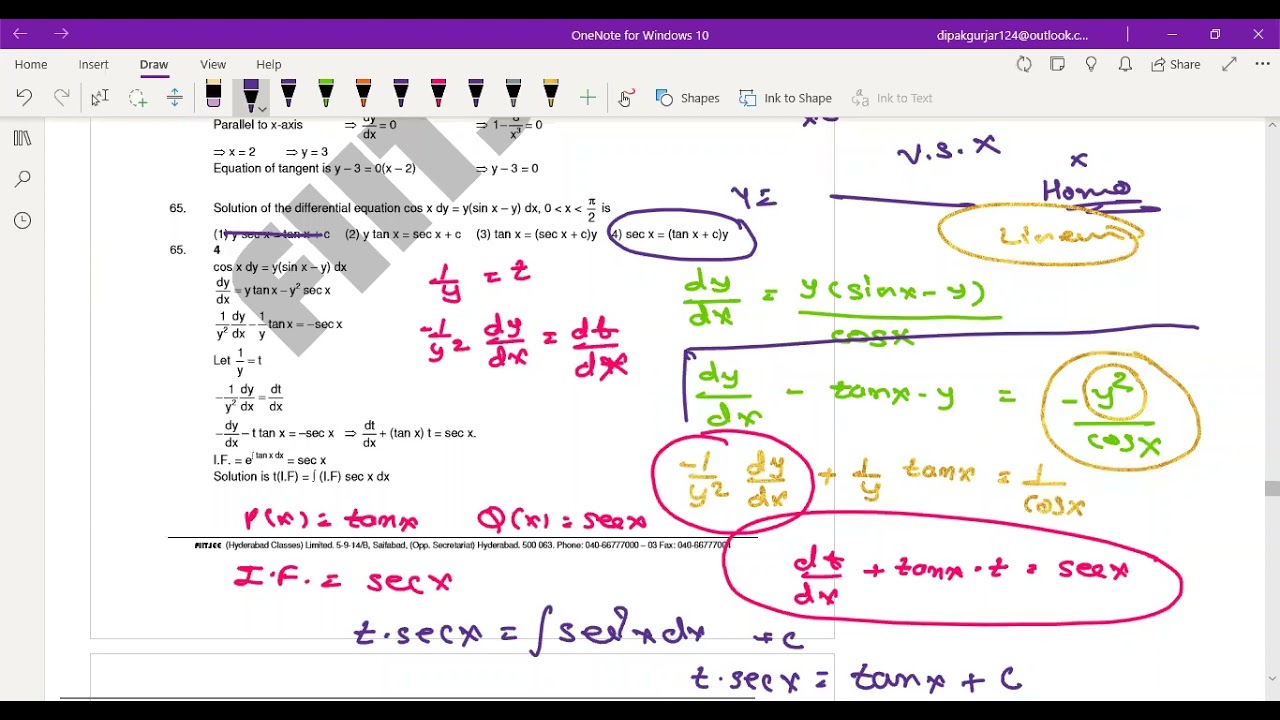 OneNote for Windows 10
dipakgurjar124@outlook.c...
Home Insert Draw View Help
Share
Shapes Ink to Shape Ink to Text
Parallel to x-axis ⇒ dy/dx = 0 ⇒ 1 − 8/x³ = 0
⇒ x = 2 ⇒ y = 3
Equation of tangent is y − 3 = 0(x − 2) ⇒ y − 3 = 0
V.S. X
x
Homo
y =
Linear
65. Solution of the differential equation cos x dy = y(sin x − y) dx, 0 < x < π/2 is
(1) y sec x = tan x + c (2) y tan x = sec x + c (3) tan x = (sec x + c)y (4) sec x = (tan x + c)y
65. 4
cos x dy = y(sin x − y) dx
dy/dx = y tan x − y² sec x
1/y² dy/dx − 1/y tan x = −sec x
Let 1/y = t
−1/y² dy/dx = dt/dx
−dy/dx − t tan x = −sec x ⇒ dt/dx + (tan x) t = sec x.
I.F. = e^∫ tan x dx = sec x
Solution is t(I.F) = ∫ (I.F) sec x dx
FIITJEE (Hyderabad Classes) Limited. 5-9-14/B, Saifabad, (Opp. Secretariat) Hyderabad. 500 063. Phone: 040-66777000 – 03 Fax: 040-6677700
1/y = t
-1/y² dy/dx = dt/dx
dy/dx = y(sinx - y)/cosx
dy/dx - tanx - y = -y²/cosx
-1/y² dy/dx + 1/y tanx = 1/cosx
P(x) = tanx Q(x) = secx
dt/dx + tanx · t = secx
I.F. = secx
t · secx = ∫ sec²x dx + c
t · secx = tanx + C